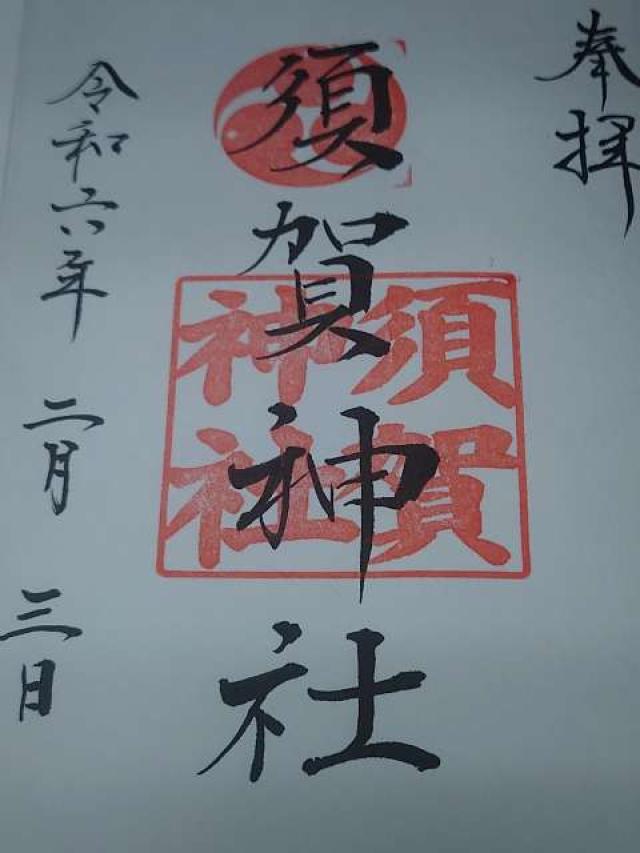 奉拝
須賀神社
須賀
神社
令和六年 二月 三日